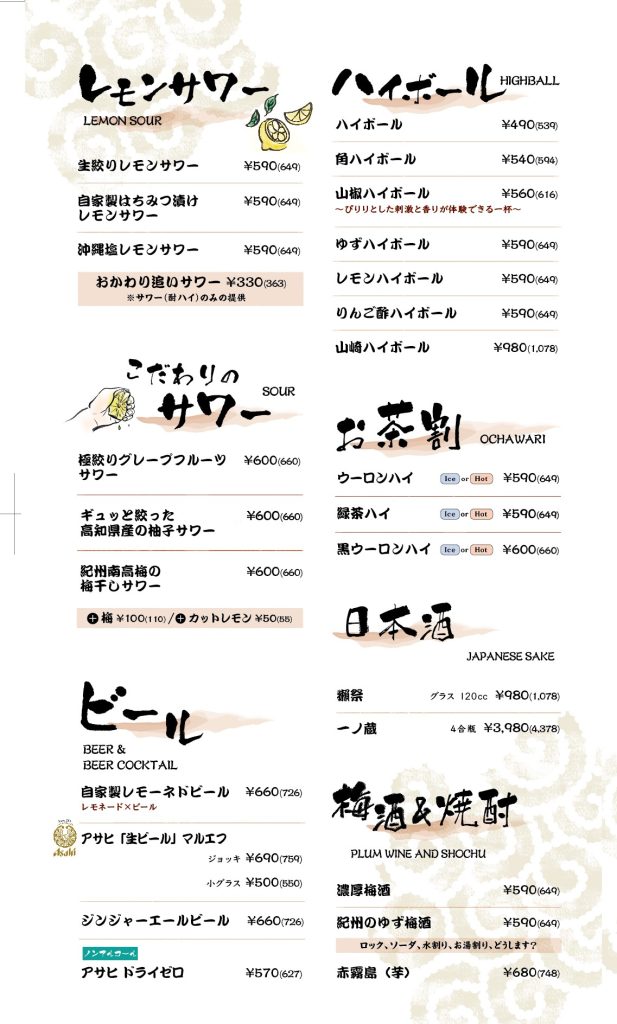 レモンサワー
LEMON SOUR
生絞りレモンサワー ¥590(649)
自家製はちみつ漬け
レモンサワー ¥590(649)
沖縄塩レモンサワー ¥590(649)
おかわり追いサワー ¥330(363)
※サワー(酎ハイ)のみの提供
こだわりの
サワー
SOUR
極絞りグレープフルーツ
サワー ¥600(660)
ギュッと絞った
高知県産の柚子サワー ¥600(660)
紀州南高梅の
梅干しサワー ¥600(660)
+梅 ¥100(110)/+カットレモン ¥50(55)
ビール
BEER &
BEER COCKTAIL
自家製レモーネドビール ¥660(726)
レモネード×ビール
Asahi
アサヒ「生ビール」マルエフ
ジョッキ ¥690(759)
小グラス ¥500(550)
ジンジャーエールビール ¥660(726)
ノンアルコール
アサヒ ドライゼロ ¥570(627)
ハイボール
HIGHBALL
ハイボール ¥490(539)
角ハイボール ¥540(594)
山椒ハイボール ¥560(616)
〜ぴりりとした刺激と香りが体験できる一杯〜
ゆずハイボール ¥590(649)
レモンハイボール ¥590(649)
りんご酢ハイボール ¥590(649)
山崎ハイボール ¥980(1,078)
お茶割
OCHAWARI
ウーロンハイ Ice or Hot ¥590(649)
緑茶ハイ Ice or Hot ¥590(649)
黒ウーロンハイ Ice or Hot ¥600(660)
日本酒
JAPANESE SAKE
獺祭 グラス 120cc ¥980(1,078)
一ノ蔵 4合瓶 ¥3,980(4,378)
梅酒&焼酎
PLUM WINE AND SHOCHU
濃厚梅酒 ¥590(649)
紀州のゆず梅酒 ¥590(649)
ロック、ソーダ、水割り、お湯割り、どうします?
赤霧島(芋) ¥680(748)